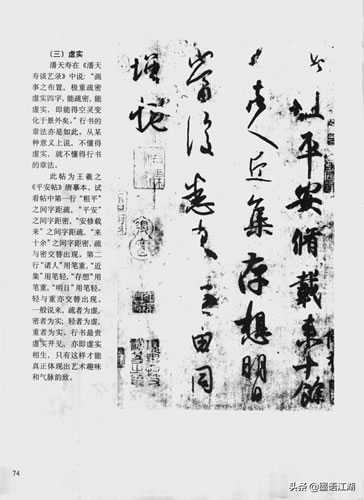 （三）虚实
潘天寿在《潘天
寿谈艺录》中说：“画
事之布置，极重疏密
虚实四字，能疏密，能
虚实，即能得空灵变
化于景外矣。”行书的
章法亦是如此。从某
种意义上说，不懂得
虚实，就不懂得行书
的章法。
此帖为王羲之
《平安帖》唐摹本。试
看帖中第一行“粗平”
之间字距疏，“平安”
之间字距密，“安修载
来”之间字距疏，“来
十余”之间字距密，疏
与密交替出现。第二
行“诸人”用笔重，“近
集”用笔轻，“存想”用
笔重，“明日”用笔轻，
轻与重亦交替出现。
一般说来，疏者为虚，
密者为实；轻者为虚，
重者为实。行书最贵
虚实并见，亦即虚实
相生，只有这样才能
真正体现出艺术趣味
和气脉韵致。
此粗平安脩載来十餘
諸人近集存想明日
當復悉来無由同
增慨
74
头条@墨语江湖